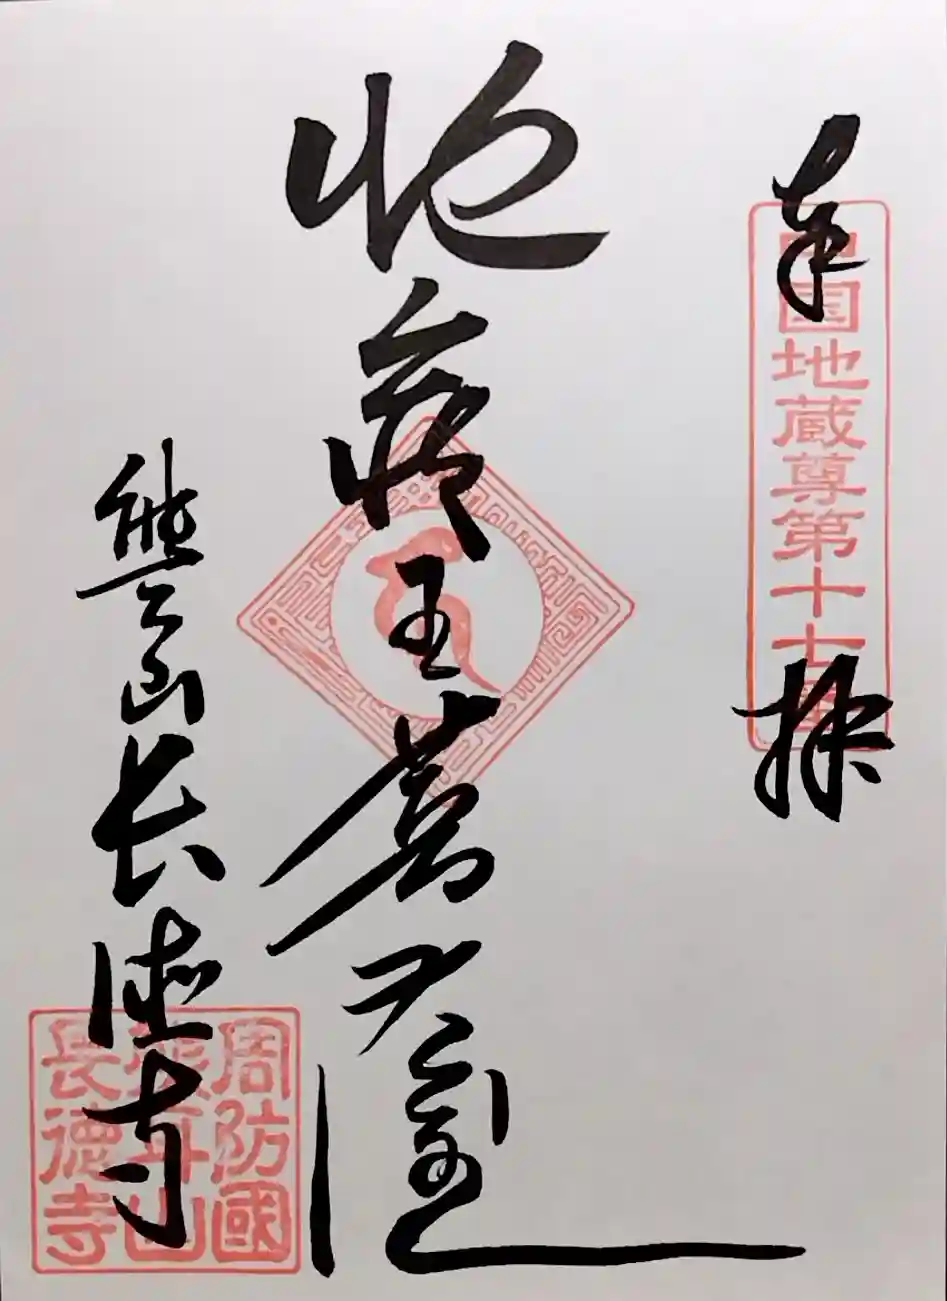 奉拝
中国地蔵尊第十七番
地蔵王菩薩
熊山長徳寺
周防國
熊山
長徳寺